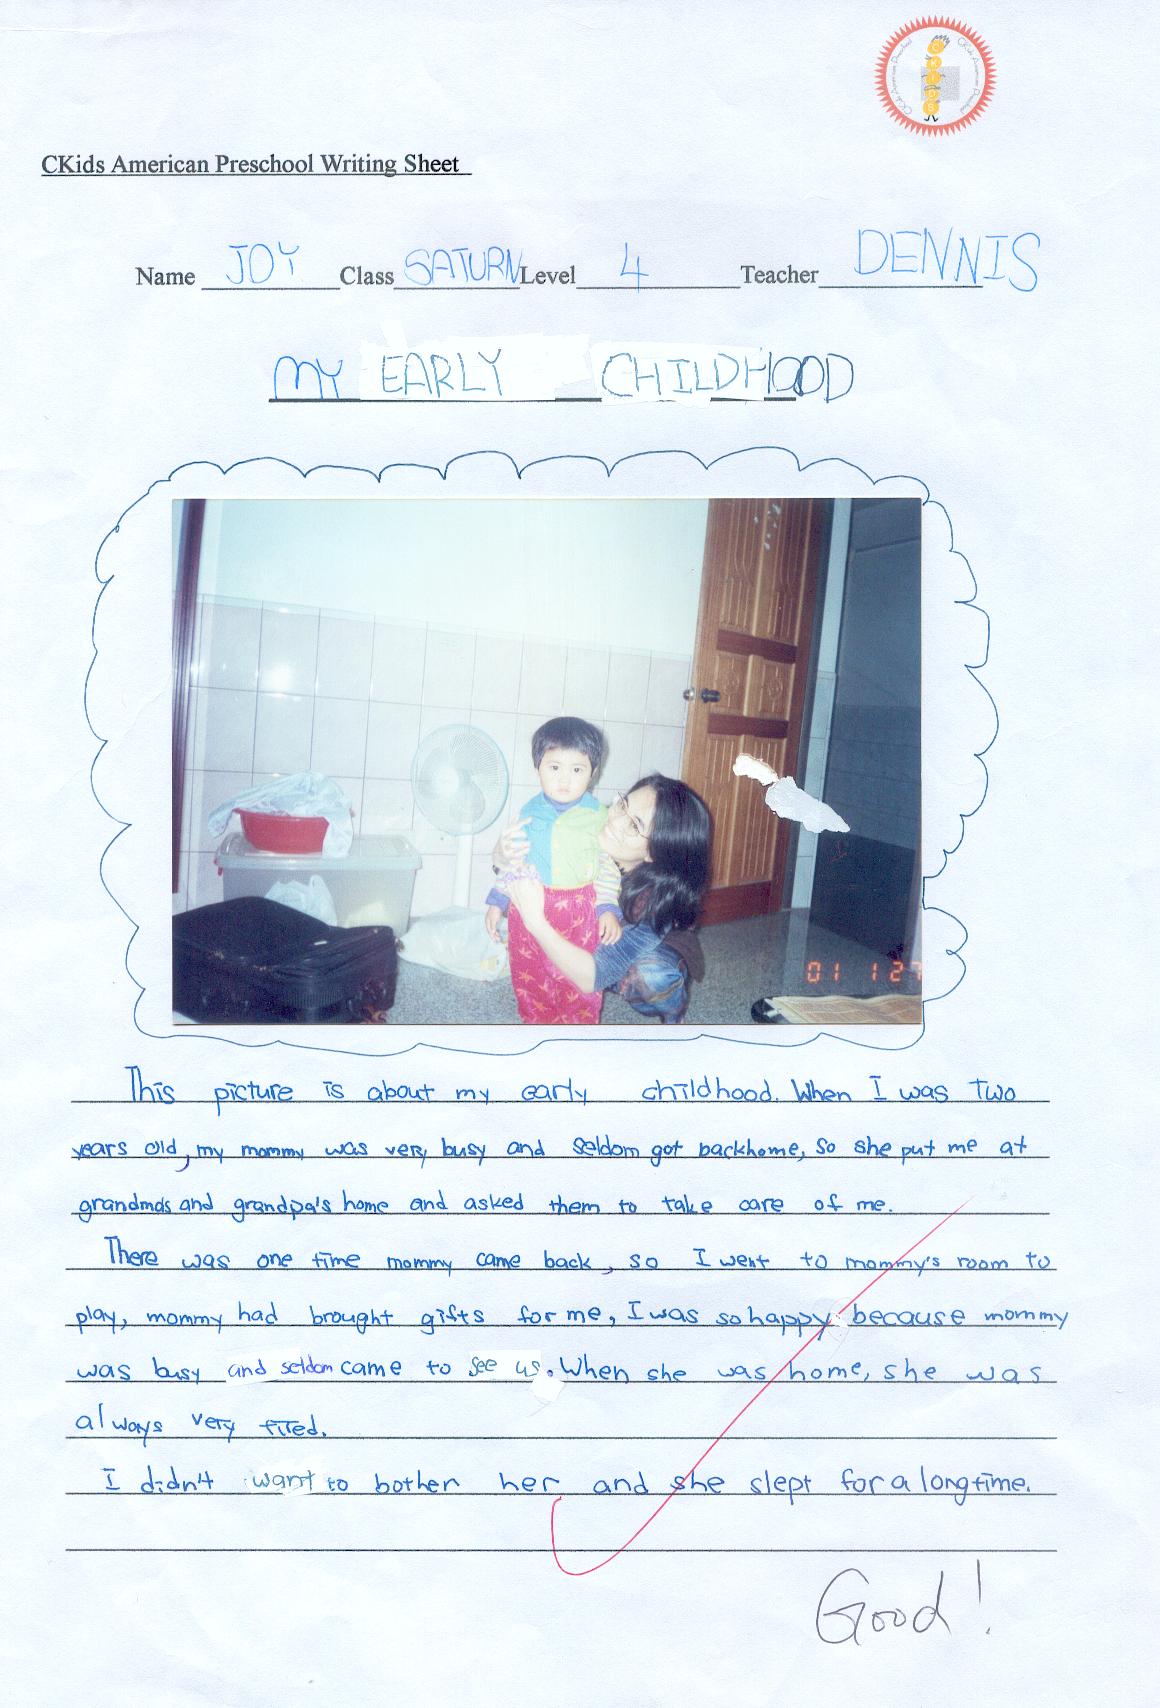 CKids American Preschool
CKids American Preschool
CKIDS
CKids American Preschool Writing Sheet
Name JOY Class SATURN Level 4 Teacher DENNIS
MY EARLY CHILDHOOD
01 1 27
This picture is about my early childhood. When I was two
years old, my mommy was very busy and seldom got backhome, so she put me at
grandma's and grandpa's home and asked them to take care of me.
There was one time mommy came back, so I went to mommy's room to
play, mommy had brought gifts for me, I was so happy because mommy
was busy and seldom came to see us. When she was home, she was
always very tired.
I didn't want to bother her and she slept for a longtime.
Good!